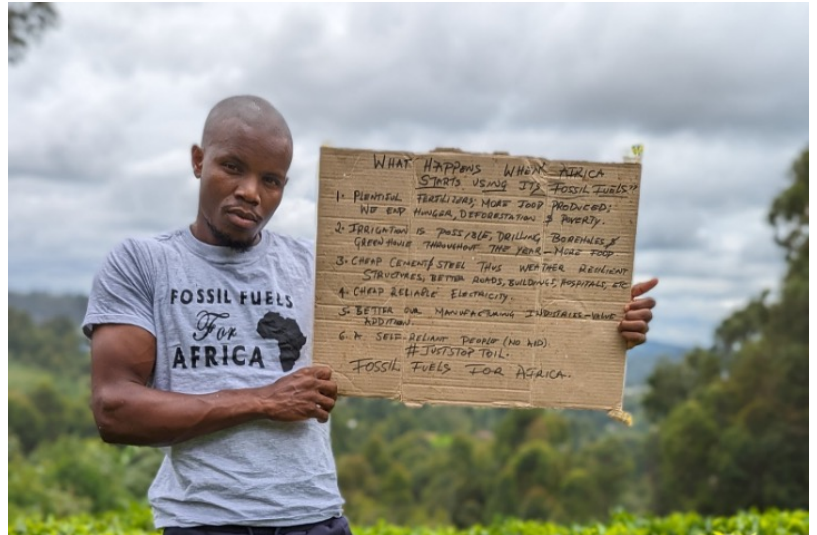 FOSSIL FUELS
For
AFRICA
WHAT HAPPENS WHEN AFRICA
STARTS USING ITS FOSSIL FUELS"
1. PLENTIFUL FERTILIZERS; MORE FOOD PRODUCED;
WE END HUNGER, DEFORESTATION & POVERTY.
2. IRRIGATION IS POSSIBLE, DRILLING BOREHOLES &
GREENHOUSE THROUGHOUT THE YEAR - MORE FOOD
3. CHEAP CEMENT & STEEL THUS WEATHER RESILIENT
STRUCTURES, BETTER ROADS, BUILDINGS, HOSPITALS, ETC
4. CHEAP RELIABLE ELECTRICITY.
5. BETTER OUR MANUFACTURING INDUSTRIES - VALUE
ADDITION
6. A SELF-RELIANT PEOPLE (NO AID).
#JUSTSTOPTOIL.
FOSSIL FUELS FOR AFRICA.